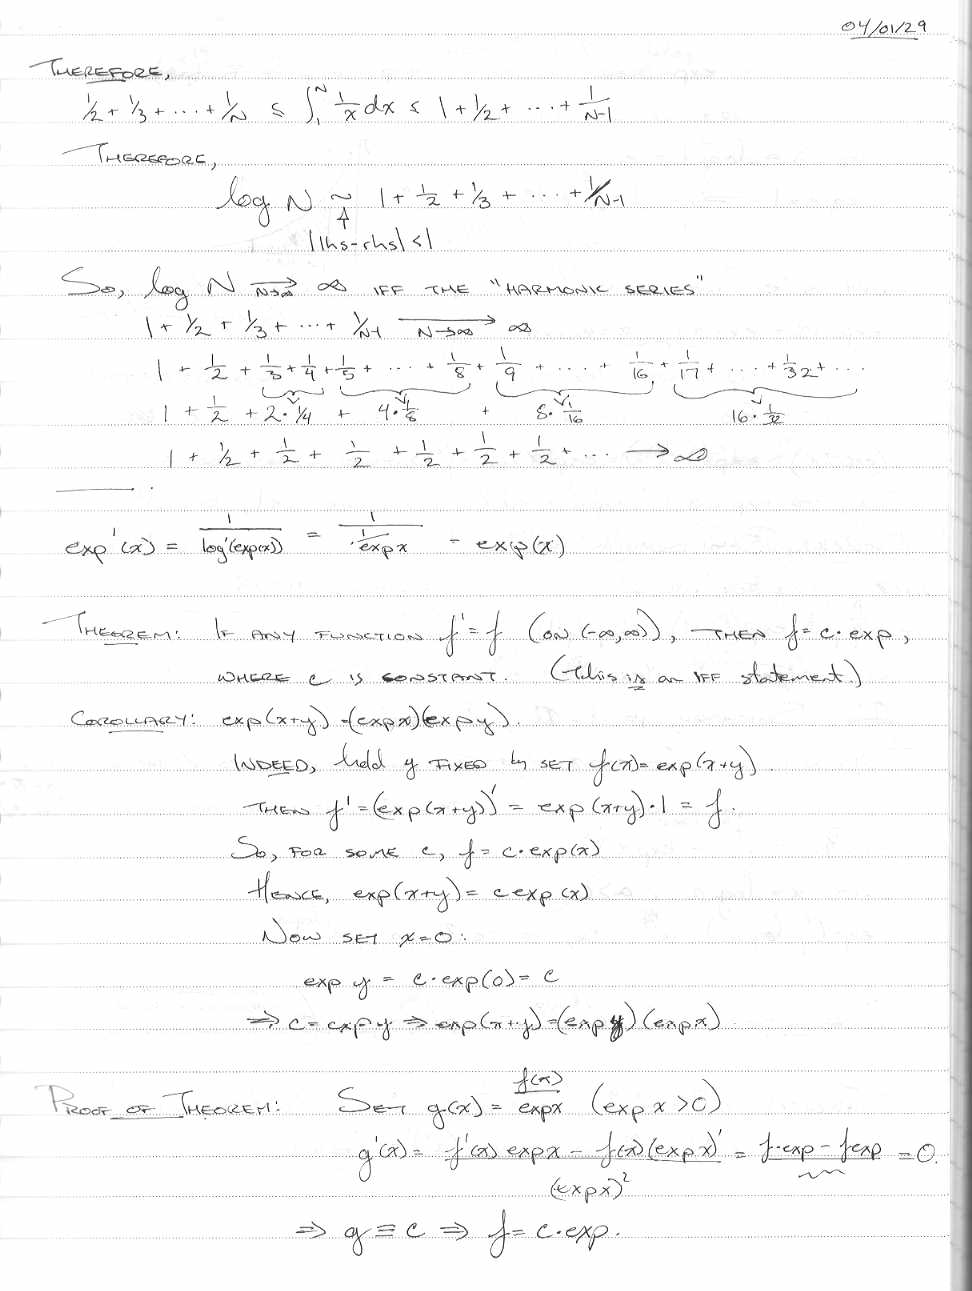 04/01/29
THEREFORE,
1/2 + 1/3 + ... + 1/N ≤ ∫₁ᴺ 1/x dx ≤ 1 + 1/2 + ... + 1/N-1
THEREFORE,
log N ~ 1 + 1/2 + 1/3 + ... + 1/N-1
↑
|lhs-rhs| < 1
So, log N →(N→∞) ∞ IFF THE "HARMONIC SERIES"
1 + 1/2 + 1/3 + ... + 1/N-1 →(N→∞) ∞
1 + 1/2 + 1/3 + 1/4 + 1/5 + ... + 1/8 + 1/9 + ... + 1/16 + 1/17 + ... + 1/32 + ...
1 + 1/2 + 2·1/4 + 4·1/8 + 8·1/16 16·1/32
1 + 1/2 + 1/2 + 1/2 + 1/2 + 1/2 + 1/2 + ... → ∞
exp'(x) = 1/log'(exp(x)) = 1/(1/exp x) = exp(x)
THEOREM: IF ANY FUNCTION f' = f (ON (-∞,∞)), THEN f = c·exp,
WHERE c IS CONSTANT. (This is an IFF statement.)
COROLLARY: exp(x+y) = (exp x)(exp y).
INDEED, hold y FIXED by SET f(x) = exp(x+y).
THEN f' = (exp(x+y))' = exp(x+y)·1 = f.
So, FOR SOME c, f = c·exp(x)
HENCE, exp(x+y) = c exp(x)
NOW SET x=0:
exp y = c·exp(0) = c
⇒ c = exp y ⇒ exp(x+y) = (exp y)(exp x)
PROOF OF THEOREM: SET g(x) = f(x)/exp x (exp x > 0)
g'(x) = f'(x) exp x - f(x)(exp x)'/(exp x)² = f·exp - f exp = 0.
⇒ g ≡ c ⇒ f = c·exp.